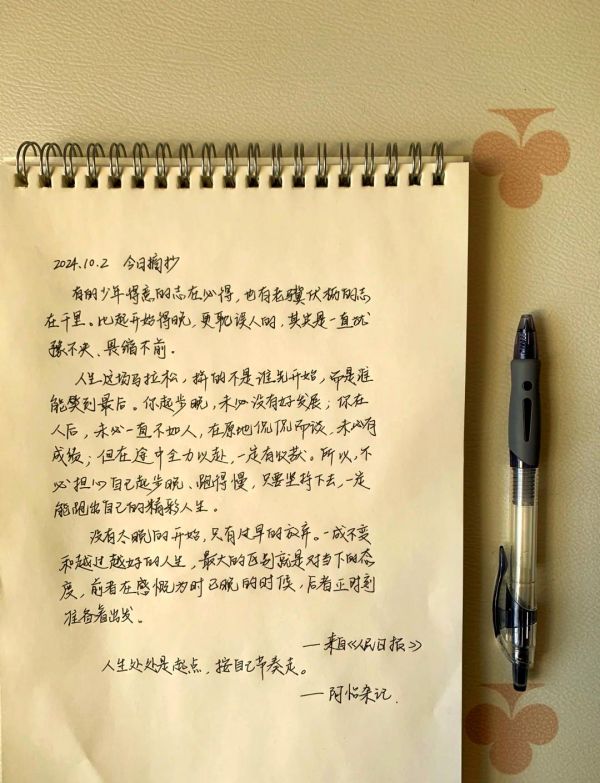 2024.10.2 今日摘抄
有的少年得意的志在必得，也有老骥伏枥的志
在千里。比起开始得晚，更耽误人的，其实是一直犹
豫不决、畏缩不前。
人生这场马拉松，拼的不是谁先开始，而是谁
能笑到最后。你起步晚，未必没有好发展；你在
人后，未必一直不如人，在原地侃侃而谈，未必有
成绩；但在途中全力以赴，一定有收获。所以，不
必担心自己起步晚、跑得慢，只要坚持下去，一定
能跑出自己的精彩人生。
没有太晚的开始，只有过早的放弃。一成不变
和越过越好的人生，最大的区别就是对当下的态
度，前者在感慨为时已晚的时候，后者正时刻
准备着出发。
—来自《人民日报》
人生处处是起点，按自己节奏走。
—阿怡杂记.